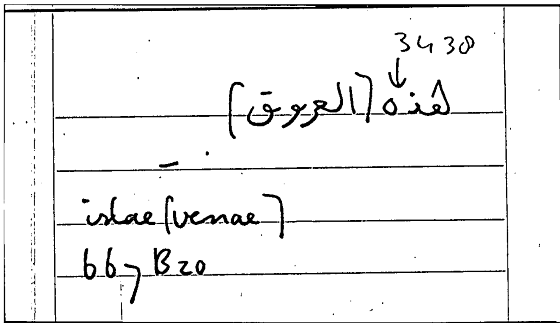 3438
هذه (العروق)
istae (venae)
66, B20